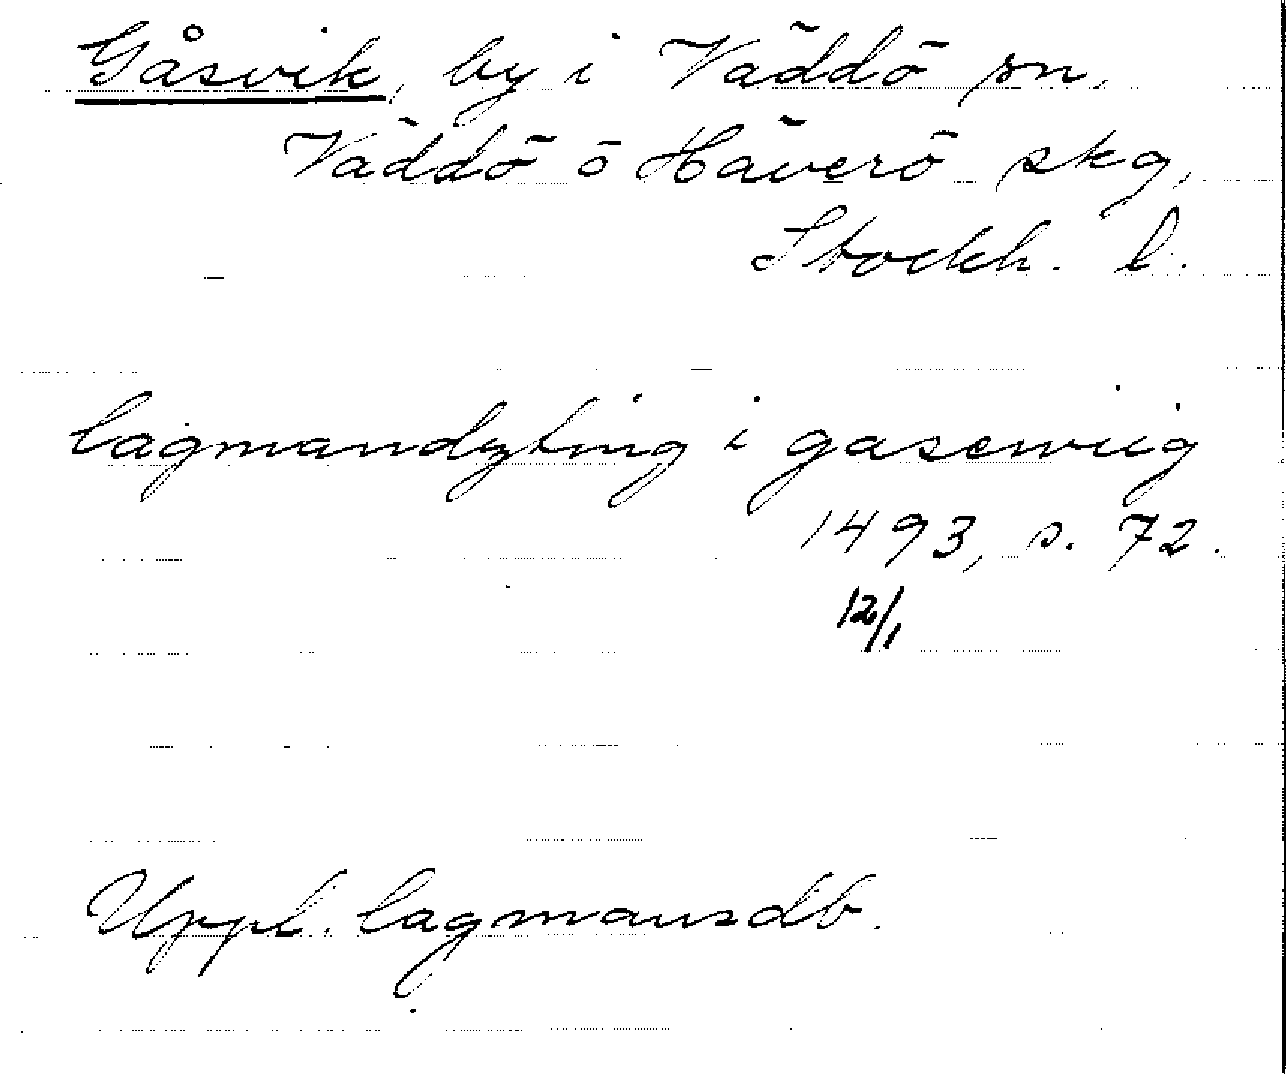 Gåsvik, by i Väddö sn,
Väddö o Häverö skg,
Stockh. l.
lagmandzting i gasewiig
1493, s. 72.
12/1
Uppl. lagmansdb.